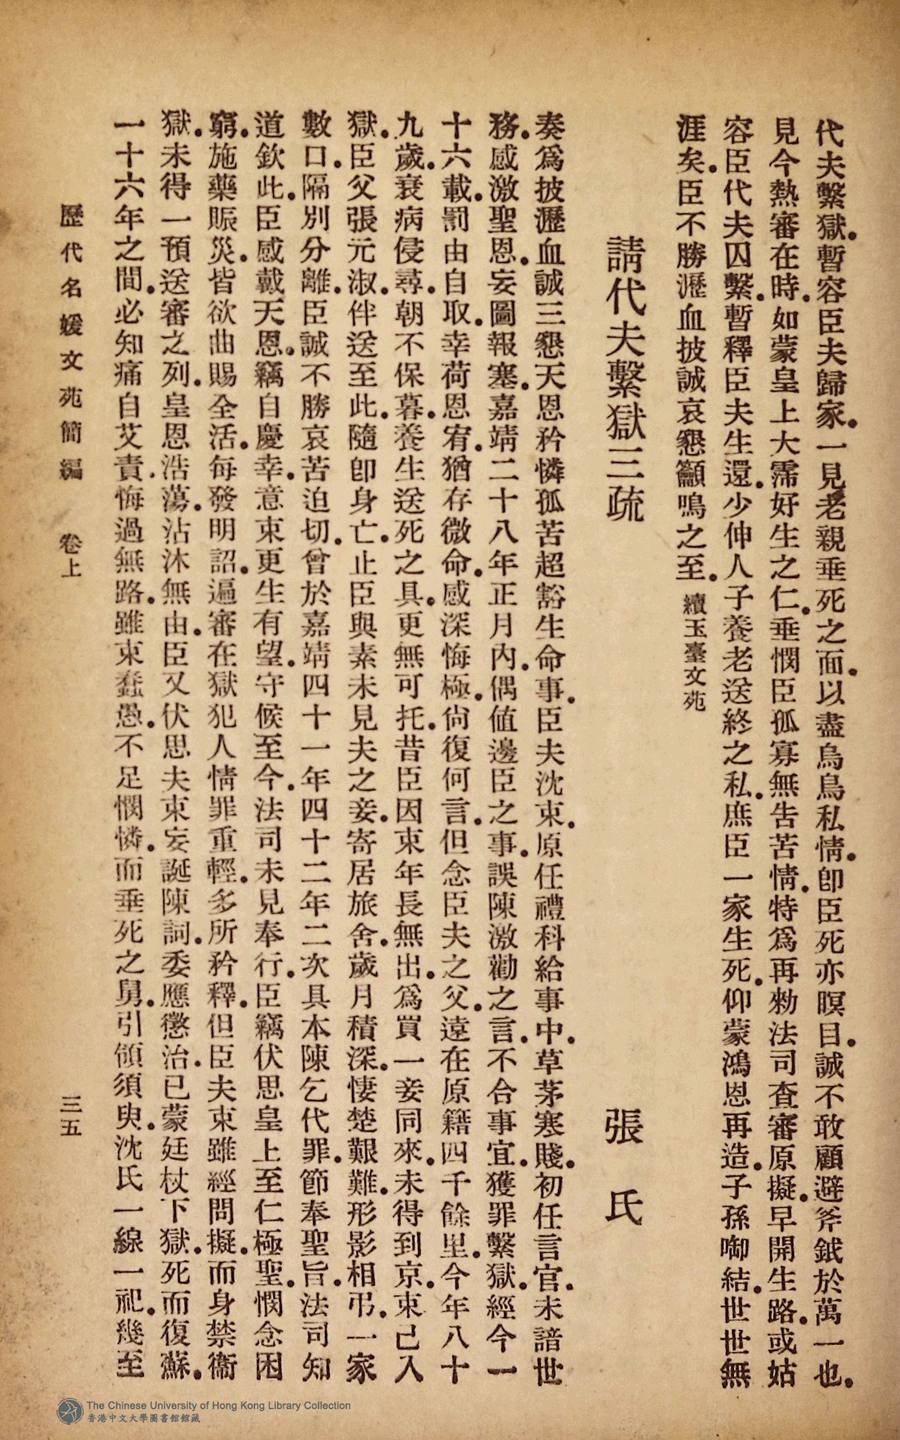 代夫繫獄。暫容臣夫歸家。一見老親垂死之面。以盡烏鳥私情。卽臣死亦瞑目。誠不敢顧避斧鉞於萬一也。
見今熱審在時。如蒙皇上大霈好生之仁。垂憫臣孤寡無告苦情。特爲再勑法司查審原擬。早開生路。或姑
容臣代夫囚繫。暫釋臣夫生還。少伸人子養老送終之私。庶臣一家生死。仰蒙鴻恩再造。子孫啣結。世世無
涯矣。臣不勝瀝血披誠哀懇籲鳴之至。續玉臺文苑
請代夫繫獄三疏 張氏
奏爲披瀝血誠三懇天恩矜憐孤苦超豁生命事。臣夫沈束。原任禮科給事中。草茅寒賤。初任言官。未諳世
務。感激聖恩。妄圖報塞。嘉靖二十八年正月內。偶値邊臣之事。誤陳激勸之言。不合事宜。獲罪繫獄。經今一
十六載。罰由自取。幸荷恩宥。猶存微命。感深悔極。尙復何言。但念臣夫之父。遠在原籍四千餘里。今年八十
九歲。衰病侵尋。朝不保暮。養生送死之具。更無可托。昔臣因束年長無出。爲買一妾同來。未得到京。束已入
獄。臣父張元淑。伴送至此。隨卽身亡。止臣與素未見夫之妾。寄居旅舍。歲月積深。悽楚艱難。形影相弔。一家
數口。隔別分離。臣誠不勝哀苦迫切。曾於嘉靖四十一年四十二年二次具本陳乞代罪。節奉聖旨。法司知
道欽此。臣感戴天恩。竊自慶幸。意束更生有望。守候至今。法司未見奉行。臣竊伏思皇上至仁極聖。憫念困
窮。施藥賑災。皆欲曲賜全活。每發明詔。遍審在獄犯人情罪重輕。多所矜釋。但臣夫束雖經問擬。而身禁衞
獄。未得一預送審之列。皇恩浩蕩。沾沐無由。臣又伏思夫束妄誕陳詞。委應懲治。已蒙廷杖下獄。死而復蘇。
一十六年之間。必知痛自艾責。悔過無路。雖束蠢愚。不足憫憐。而垂死之舅。引領須臾。沈氏一線一祀。幾至
歷代名媛文苑簡編 卷上 三五
The Chinese University of Hong Kong Library Collection
香港中文大學圖書館館藏